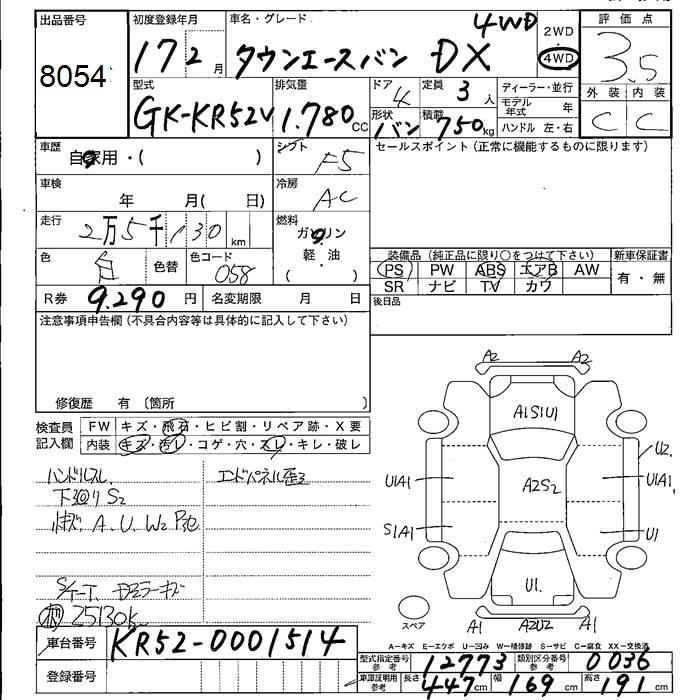 出品番号 初度登録年月 車名・グレード 4WD 2WD 評価点
8054 17 2月 タウンエースバン DX 4WD 3.5
型式 排気量 ドア 定員 ディーラー・並行 外装 内装
GK-KR52V 1.780cc 4 3人 モデル年式 年 C C
形状 積載 ハンドル 左・右
バン 750kg
車歴 自家用・( ) シフト F5 セールスポイント(正常に機能するものに限ります)
車検 年 月( 日) 冷房 AC
走行 2万5千130km 燃料 ガソリン
軽・油
( )
色 白 色替 色コード 058 装備品(純正品に限り○をつけて下さい) 新車保証書
PS PW ABS エアB AW 有・無
SR ナビ TV カワ
R券 9.290円 名変期限 月 日 後日品
注意事項申告欄(不具合内容等は具体的に記入して下さい)
修復歴 有 〔箇所 〕
検査員 FW キズ・飛石・ヒビ割・リペア跡・X要
記入欄 内装 キズ・汚れ・コゲ・穴・スレ・キレ・破レ
ハンドルスレ エンドパネル歪ミ
下廻りS2
A.U.W2
25130K
A2 A2
A1S1U1
U2
U1A1 A2S2 U1A1
S1A1 U1
U1.
スペア A1 A2U2 A1
A-キズ E-エクボ U-凹み W-補修跡 S-サビ C-腐食 XX-交換済
車台番号 KR52-0001514
型式指定番号参考 12773 類別区分番号参考 0036
登録番号
車庫証明用参考 長さ 447cm 幅 169cm 高さ 191cm